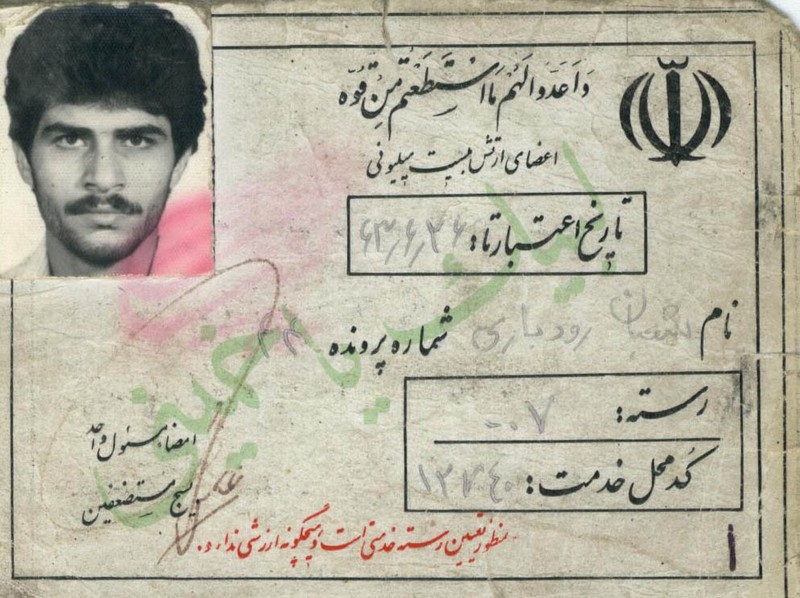 وَاَعِدّوا لَهُم مَا اسْتَطَعْتُم مِنْ قُوّه
اعضای ارتش بیست میلیونی
تاریخ اعتبار تا: ۶۳/۶/۲۶
نام شعبان رودباری شماره پرونده ۲۲
رسته: ۰۰۷
کُد محل خدمت:
لبیک یا خمینی
امضاء مسئول واحد
بسیج مستضعفین
منظور تعیین رسته خدمتی است و هیچگونه ارزشی ندارد.